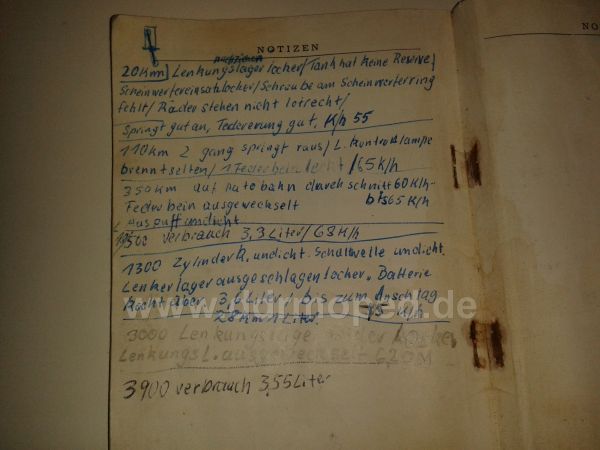 NOTIZEN
NO
nachziehen
20Km Lenkungslager locher/Tank hat keine Reserve/
Scheinwerfereinsatz locher/Schraube am Scheinwerferring
fehlt/ Räder stehen nicht lotrecht/
Springt gut an, Federung gut, K/h 55
110km 2 gang springt raus/L. Kontrollampe
brennt selten/1 Federbein leckt /65 K/h
350km auf Autobahn durchschnitt 60 K/h-
Federbein ausgewechselt bis 65 K/h
Auspuff undicht
500 verbrauch 3,3 Liter/68 K/h
1300 Zylinder K. undicht. Schaltwelle undicht.
Lenkerlager ausgeschlagen locher. Batterie
Kocht über 3,6 Liter bis zum Anschlag
28 km 1 Liter. 75 K/h
www.ddrmoped.de
3000 Lenkungslager
Lenkungs L. ausgewechselt
3900 verbrauch 3,55 Liter